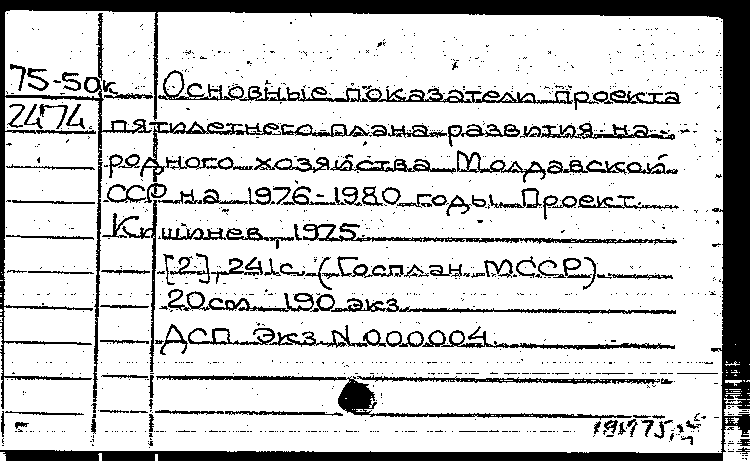 75-50к Основные показатели проекта
2474 пятилетнего плана развития на-
родного хозяйства Молдавской
ССР на 1976-1980 годы. Проект.
Кишинев, 1975.
[2], 241с. (Госплан МССР)
20см. 190 экз.
ДСП. Экз. N 000004.